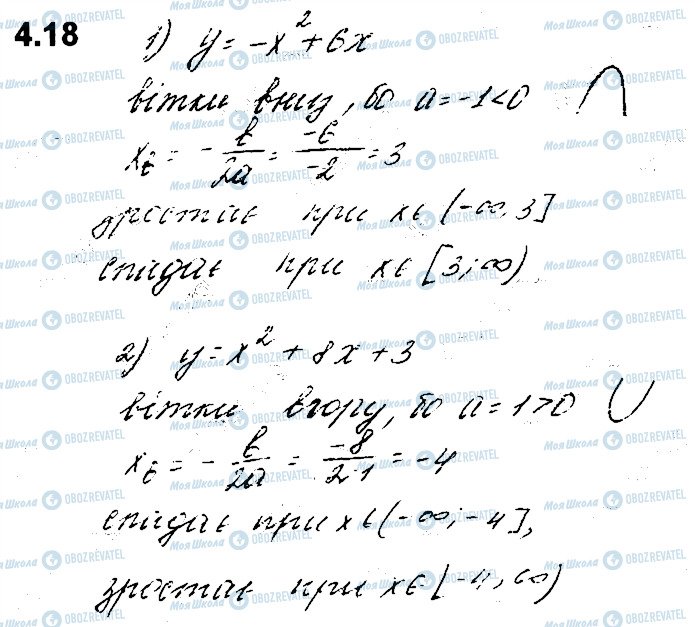 4.18
1) y = -x² + 6x
вітки вниз, бо a = -1 < 0
x_в = -b/2a = -6/-2 = 3
зростає при x ∈ (-∞; 3]
спадає при x ∈ [3; ∞)
2) y = x² + 8x + 3
вітки вгору, бо a = 1 > 0
x_в = -b/2a = -8/2·1 = -4
спадає при x ∈ (-∞; -4],
зростає при x ∈ [-4; ∞)